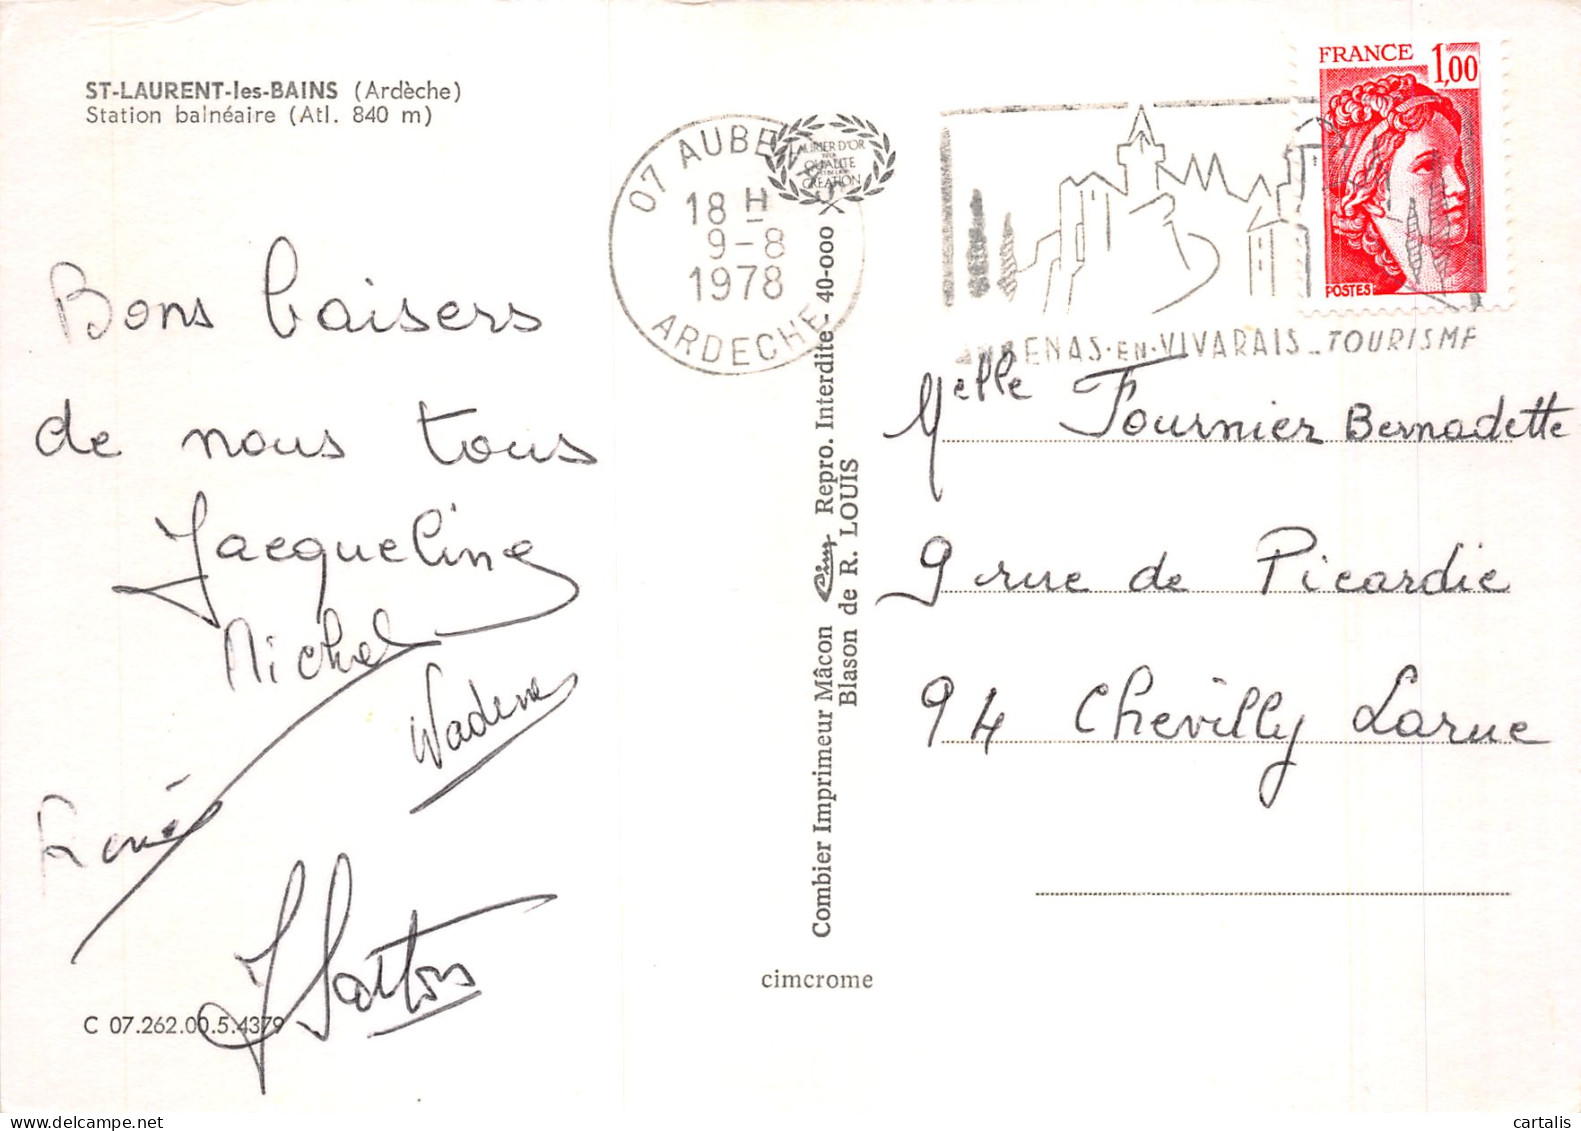 ST-LAURENT-les-BAINS (Ardèche)
Station balnéaire (Atl. 840 m)
Bons baisers
de nous tous
Jacqueline
Michel
Wadene
René
C 07.262.00.5.4379
07 AUBENAS
18 H
9-8
1978
ARDECHE
LAURIER D'OR
DE LA
QUALITE
CREATION
Combier Imprimeur Mâcon Cim Repro. Interdite - 40-000
Blason de R. LOUIS
cimcrome
FRANCE 1,00
POSTES
AUBENAS-EN-VIVARAIS_TOURISME
Melle Fournier Bernadette
9 rue de Picardie
94 Chevilly Larue
cartalis